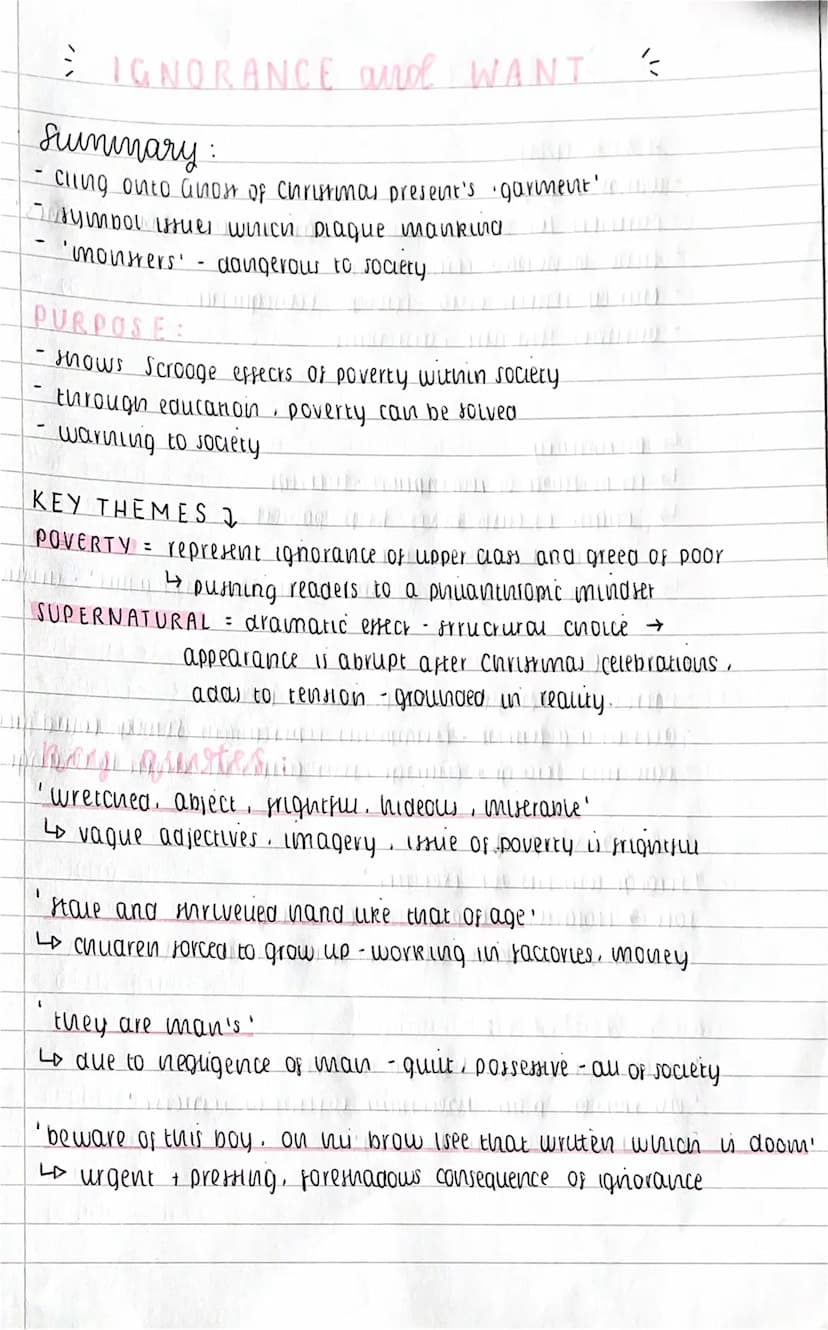 IGNORANCE and WANT
Summary:
- cling onto Ghost of Christmas present's 'garment'
- symbol issues which plague mankind
- 'monsters' - dangerous to society
PURPOSE:
- shows Scrooge effects of poverty within society
- through education, poverty can be solved
- warning to society
KEY THEMES ↴
POVERTY = represent ignorance of upper class and greed of poor
↳ pushing readers to a philanthropic mindset
SUPERNATURAL = dramatic effect - structural choice →
appearance is abrupt after Christmas celebrations,
adds to tension - grounded in reality.
Key quotes:
'wretched, abject, frightful, hideous, miserable'
↳ vague adjectives, imagery, issue of poverty is frightful
'stale and shriveled hand like that of age'
↳ children forced to grow up - working in factories, money
'they are man's'
↳ due to negligence of man - guilt, possessive - all of society
'beware of this boy, on his brow I see that written which is doom'
↳ urgent + pressing, foreshadows consequence of ignorance